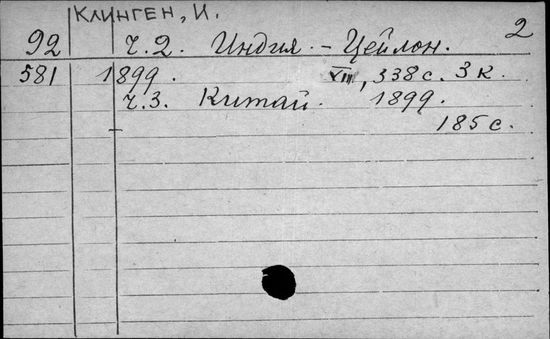 Клинген, И.
2
92 ч.2. Индия – Цейлон.
581 1899. VIII, 338 с. 3 к.
ч.3. Китай. 1899.
185 с.